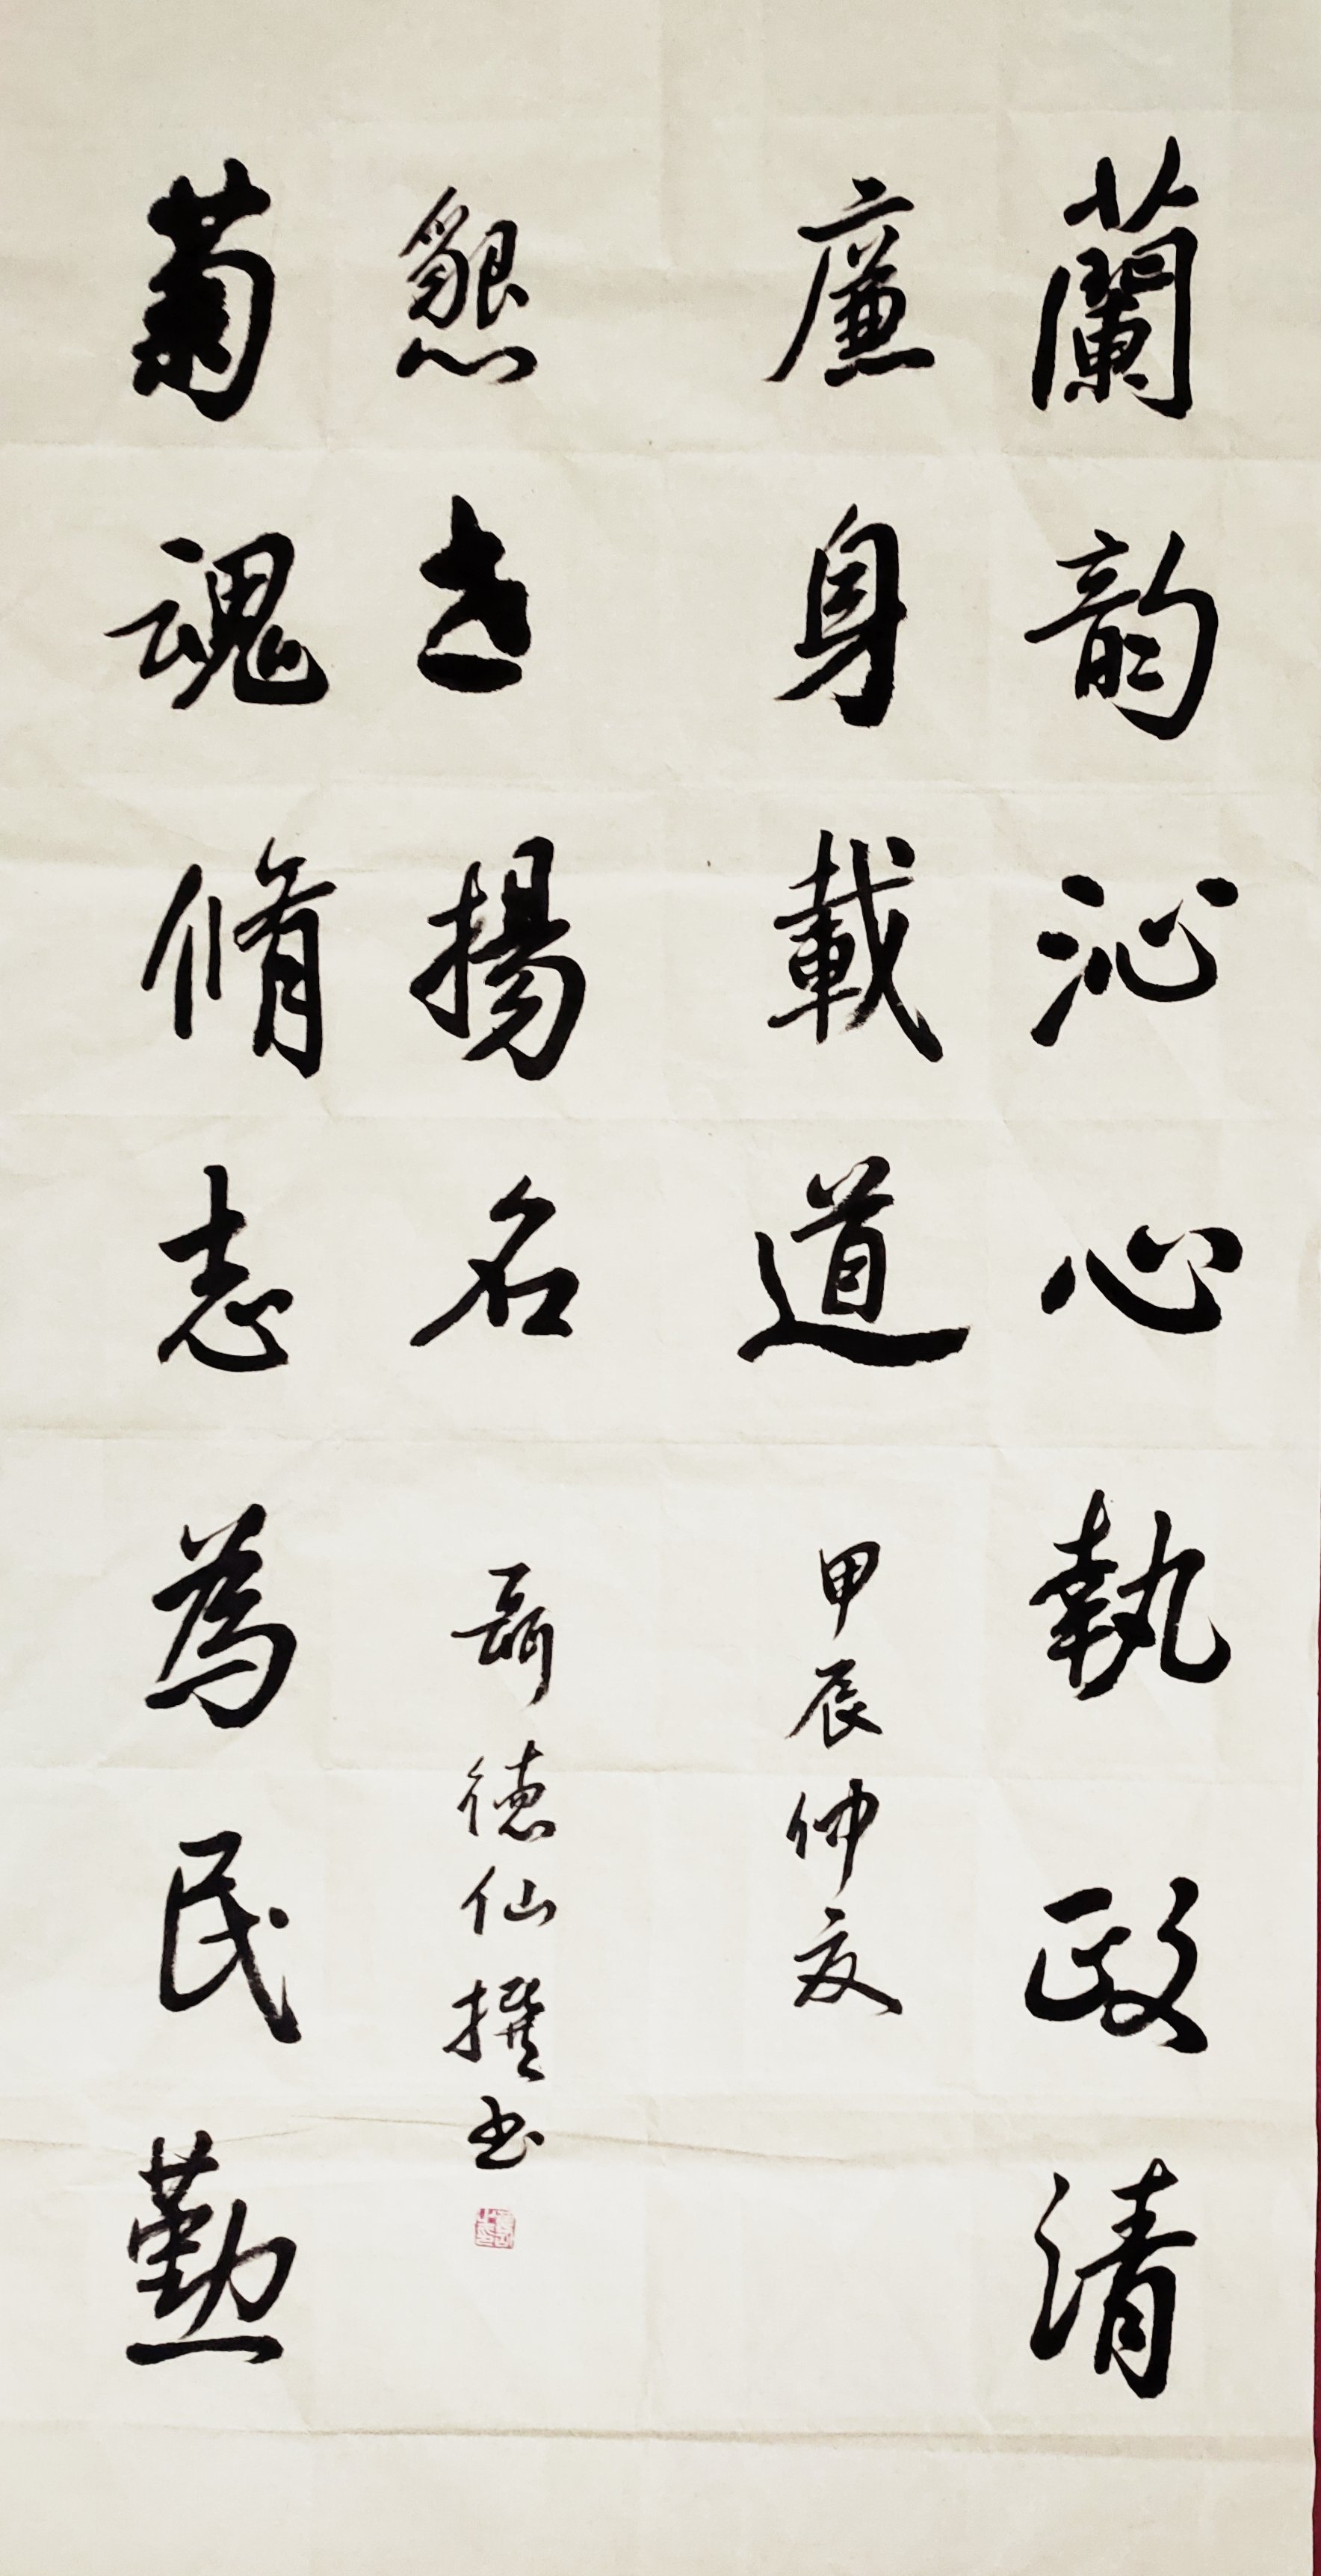 蘭韵沁心執政清
廉身載道
甲辰仲夏
菊魂脩志為民勤
懇世揚名
聶德仙撰书